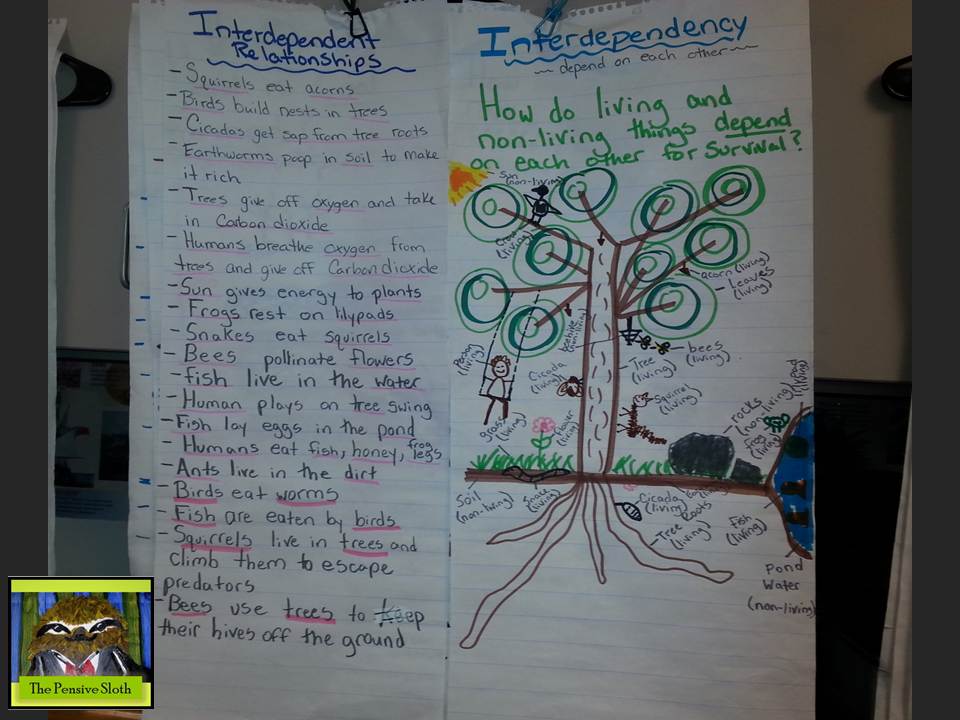 Interdependent
Relationships
- Squirrels eat acorns
- Birds build nests in trees
- Cicadas get sap from tree roots
- Earthworms poop in soil to make
it rich
- Trees give off oxygen and take
in Carbon dioxide
- Humans breathe oxygen from
trees and give off Carbon dioxide
- Sun gives energy to plants
- Frogs rest on lilypads
- Snakes eat squirrels
- Bees pollinate flowers
- fish live in the water
- Human plays on tree swing
- Fish lay eggs in the pond
- Humans eat fish, honey, frog legs
- Ants live in the dirt
- Birds eat worms
- Fish are eaten by birds
- Squirrels live in trees and
climb them to escape
predators
- Bees use trees to keep
their hives off the ground
Interdependency
~ depend on each other ~
How do living and
non-living things depend
on each other for survival?
Sun
(non-living)
Crow
(living)
acorn (living)
Leaves
(living)
beehive
(non-living)
bees
(living)
Tree
(living)
Person
(living)
Cicada
(living)
Squirrel
(living)
grass
(living)
flower
(living)
rocks
(non-living)
frog
(living)
Soil
(non-living)
Snake
(living)
Cicada
(living)
Tree
Roots
(living)
Fish
(living)
Pond
Water
(non-living)
The Pensive Sloth